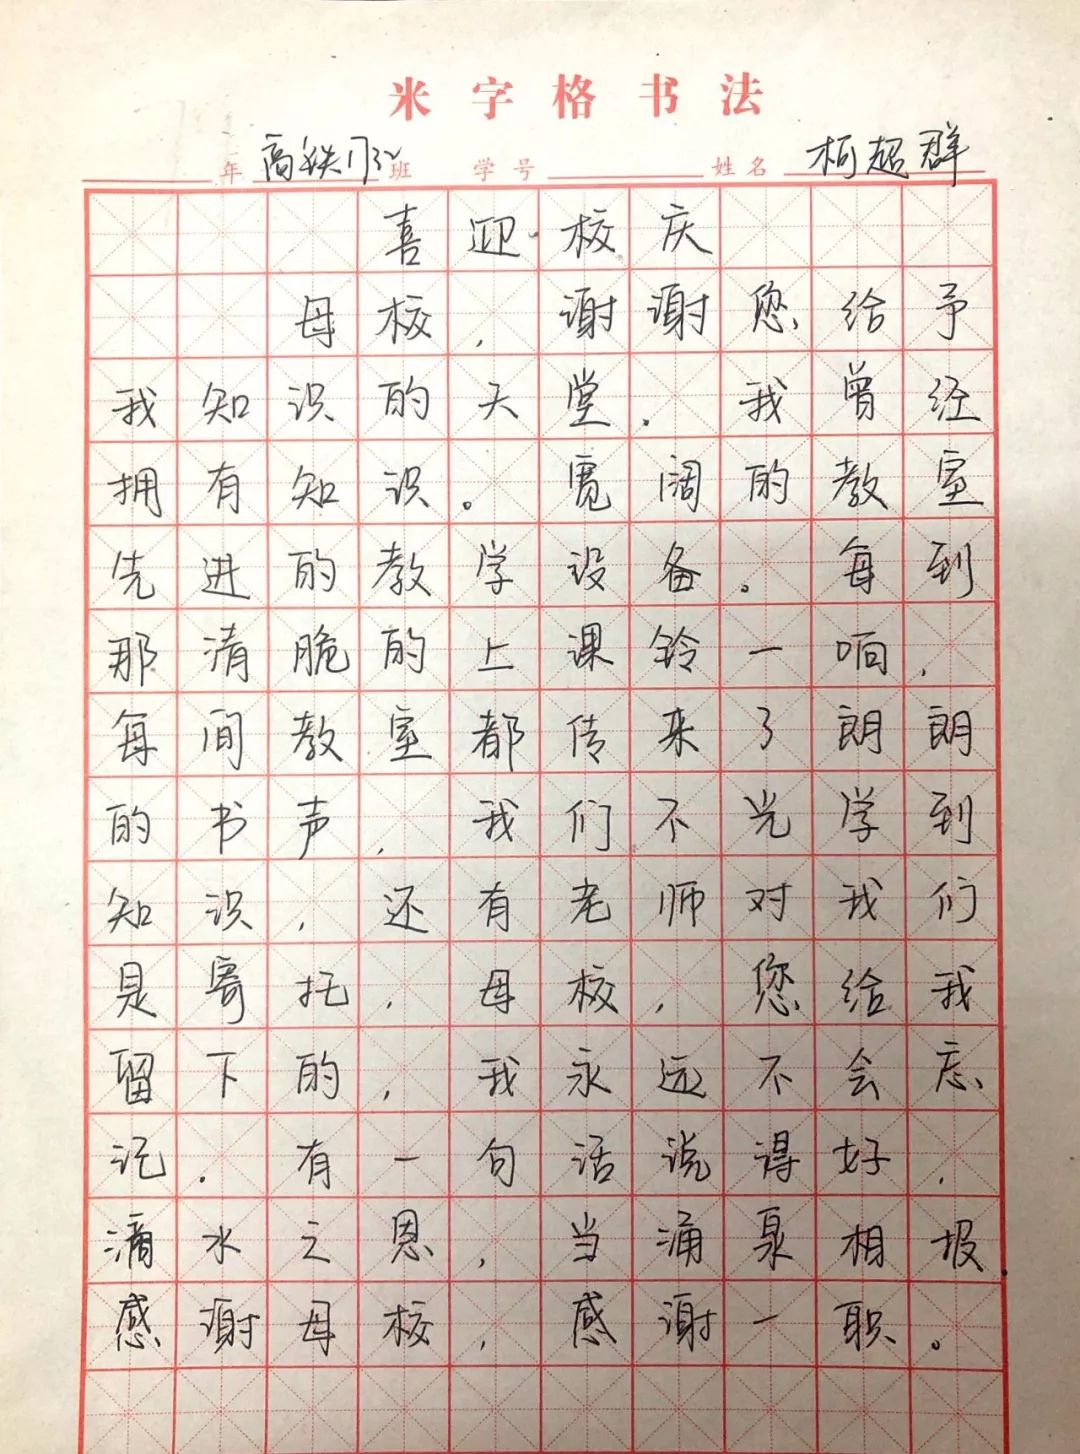 米字格书法
年 高铁1732班 学号 姓名 柯超群
喜迎校庆
母校,谢谢您给予
我知识的天堂.我曾经
拥有知识。宽阔的教室
先进的教学设备。每到
那清脆的上课铃一响,
每间教室都传来了朗朗
的书声,我们不光学到
知识,还有老师对我们
是寄托,母校,您给我
留下的,我永远不会忘
记.有一句话说得好,
滴水之恩,当涌泉相报
感谢母校,感谢一职。